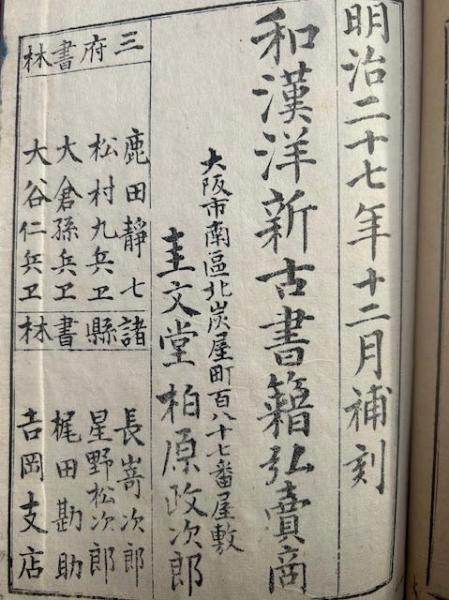 明治二十七年十二月補刻
和漢洋新古書籍弘賣商
大阪市南區北炭屋町百八十七番屋敷
圭文堂 柏原政次郎
三府書林
鹿田靜七
松村九兵卫
大倉孫兵卫
大谷仁兵卫
諸縣書林
長嵜次郎
星野松次郎
梶田勘助
吉岡支店